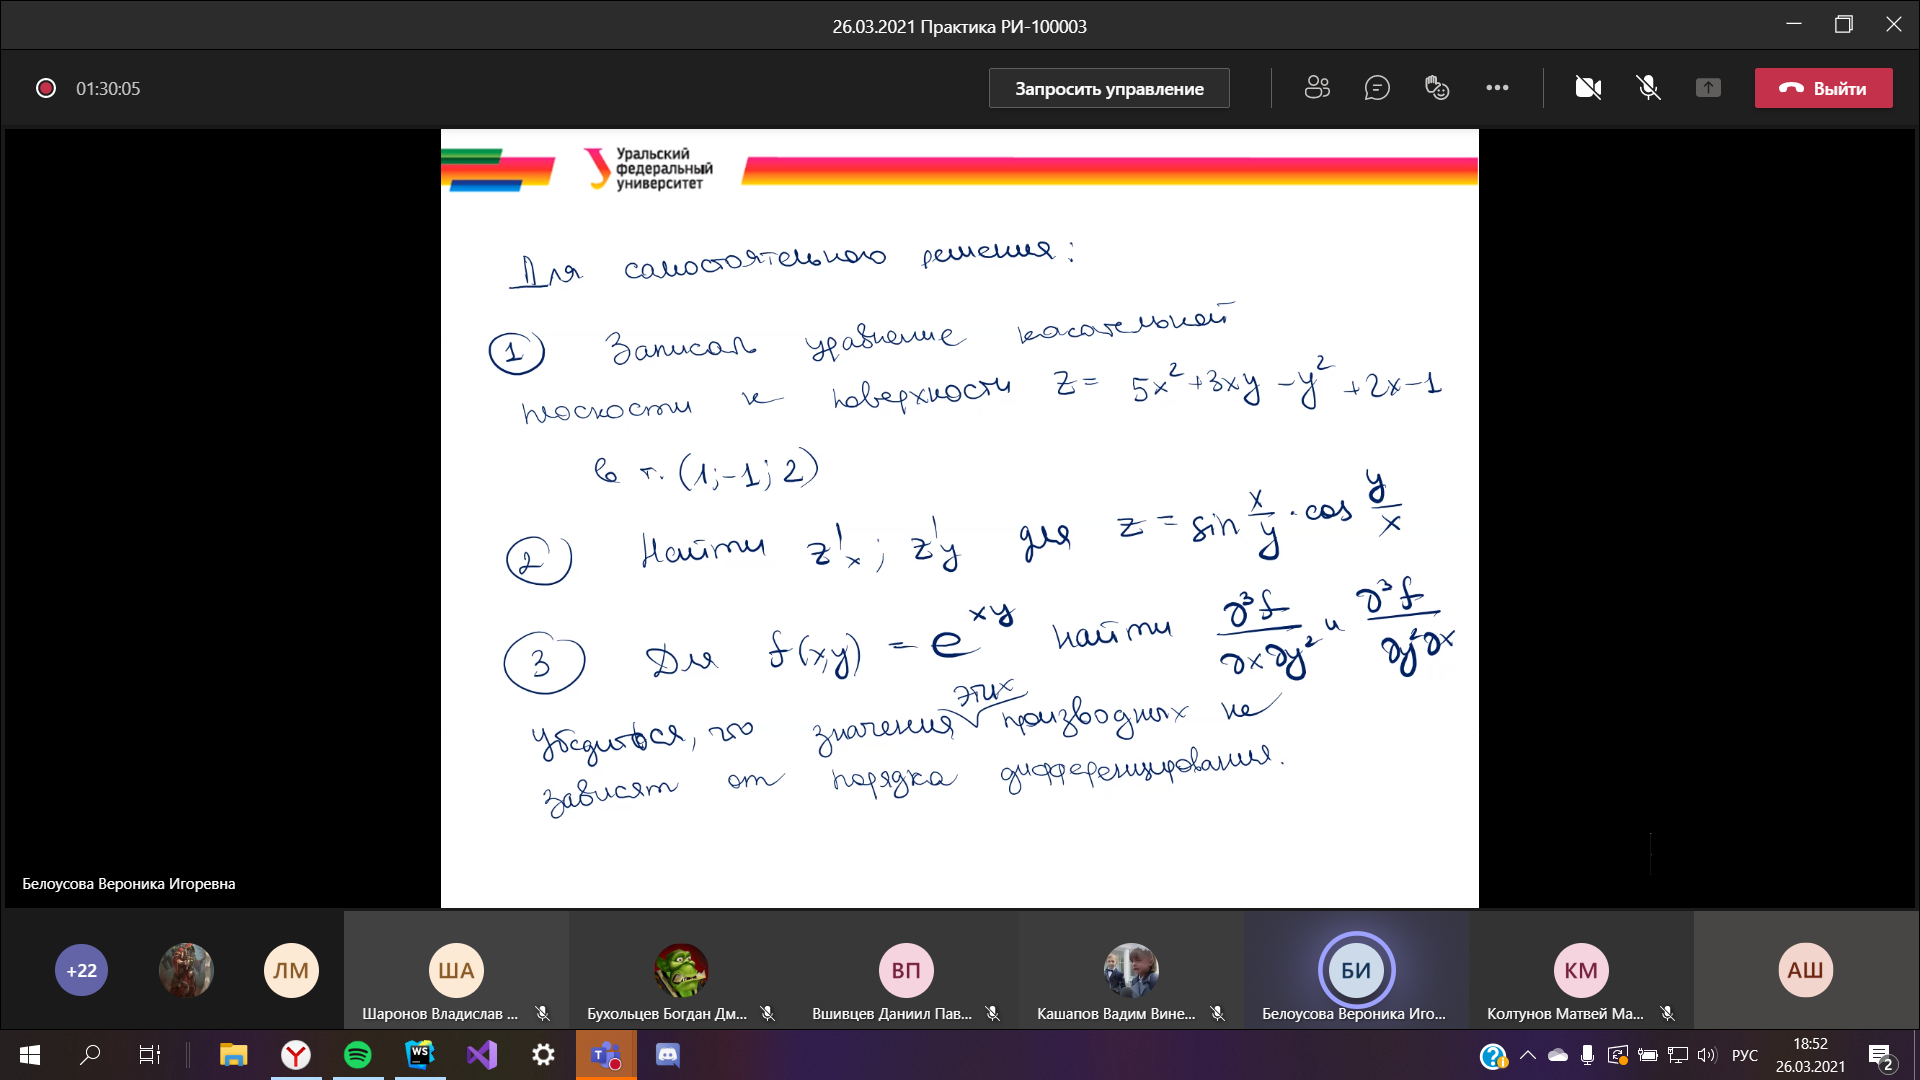 26.03.2021 Практика РИ-100003
01:30:05
Запросить управление
Выйти
Уральский
федеральный
университет
Для самостоятельного решения:
1 Записать уравнение касательной
плоскости к поверхности z = 5x²+3xy -y² +2x-1
в т. (1;-1;2)
2 Найти z'x; z'y для z = sin x/y · cos y/x
3 Для f(x,y) = e^xy найти ∂³f/∂x∂y² и ∂³f/∂y²∂x
убедиться, что значения этих производных не
зависят от порядка дифференцирования.
Белоусова Вероника Игоревна
+22
ЛМ
ША
ВП
БИ
КМ
АШ
Шаронов Владислав ...
Бухольцев Богдан Дм...
Вшивцев Даниил Пав...
Кашапов Вадим Вине...
Белоусова Вероника Иго...
Колтунов Матвей Ма...
WS
РУС
18:52
26.03.2021
2